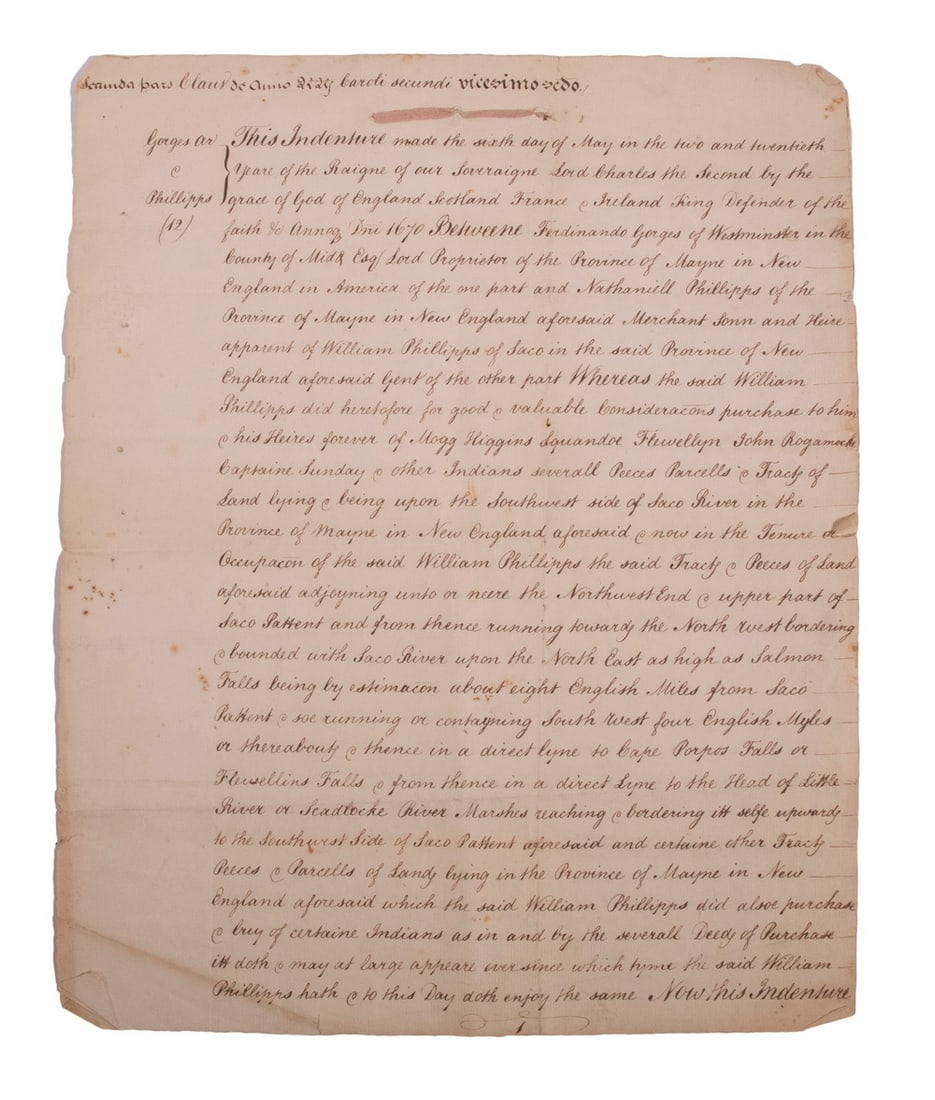 Secunda pars Claus de Anno RRs Caroli secundi vicesimo scdo.
Gorges ar
&
Phillipps
(12)
This Indenture made the sixth day of May in the two and twentieth
Yeare of the Raigne of our Soveraigne Lord Charles the Second by the
grace of God of England Scotland France & Ireland King Defender of the
faith &c Annoq Dni 1670 Betweene Ferdinando Gorges of Westminster in the
County of Midx Esq Lord Proprietor of the Province of Mayne in New
England in America of the one part and Nathaniell Phillipps of the
Province of Mayne in New England aforesaid Merchant Sonn and Heire
apparent of William Phillipps of Saco in the said Province of New
England aforesaid Gent of the other part Whereas the said William
Phillipps did heretofore for good & valuable Consideracons purchase to him
& his Heires forever of Mogg Higgins Squandoe Flewellyn John Rogamocke
Captaine Sunday & other Indians severall Peeces Parcells & Tracts of
Land lying & being upon the Southwest side of Saco River in the
Province of Mayne in New England aforesaid & now in the Tenure or
Occupacon of the said William Phillipps the said Tracts & Peeces of Land
aforesaid adjoyning unto or neere the Northwest End & upper part of
Saco Pattent and from thence running towards the North west bordering
& bounded with Saco River upon the North East as high as Salmon
Falls being by estimacon about eight English Miles from Saco
Pattent & soe running or contayning South west four English Myles
or thereabouts & thence in a direct lyne to Cape Porpos Falls or
Flewellins Falls & from thence in a direct Lyne to the Head of Little
River or Scadlocke River Marshes reaching & bordering itt selfe upwards
to the Southwest Side of Saco Pattent aforesaid and certaine other Tracts
Peeces & Parcells of Lands lying in the Province of Mayne in New
England aforesaid which the said William Phillipps did alsoe purchase
& buy of certaine Indians as in and by the severall Deeds of Purchase
itt doth & may at large appeare ever since which tyme the said William
Phillipps hath & to this Day doth enjoy the same Now this Indenture
1